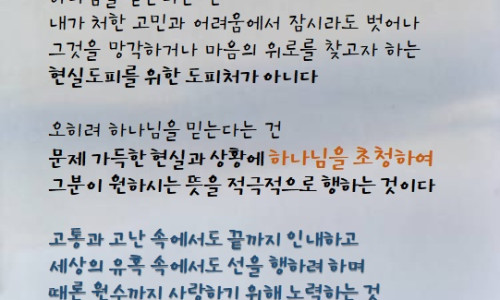 하나님을 믿는다는 건
내가 처한 고민과 어려움에서 잠시라도 벗어나
그것을 망각하거나 마음의 위로를 찾고자 하는
현실도피를 위한 도피처가 아니다
오히려 하나님을 믿는다는 건
문제 가득한 현실과 상황에 하나님을 초청하여
그분이 원하시는 뜻을 적극적으로 행하는 것이다
고통과 고난 속에서도 끝까지 인내하고
세상의 유혹 속에서도 선을 행하려 하며
때론 원수까지 사랑하기 위해 노력하는 것